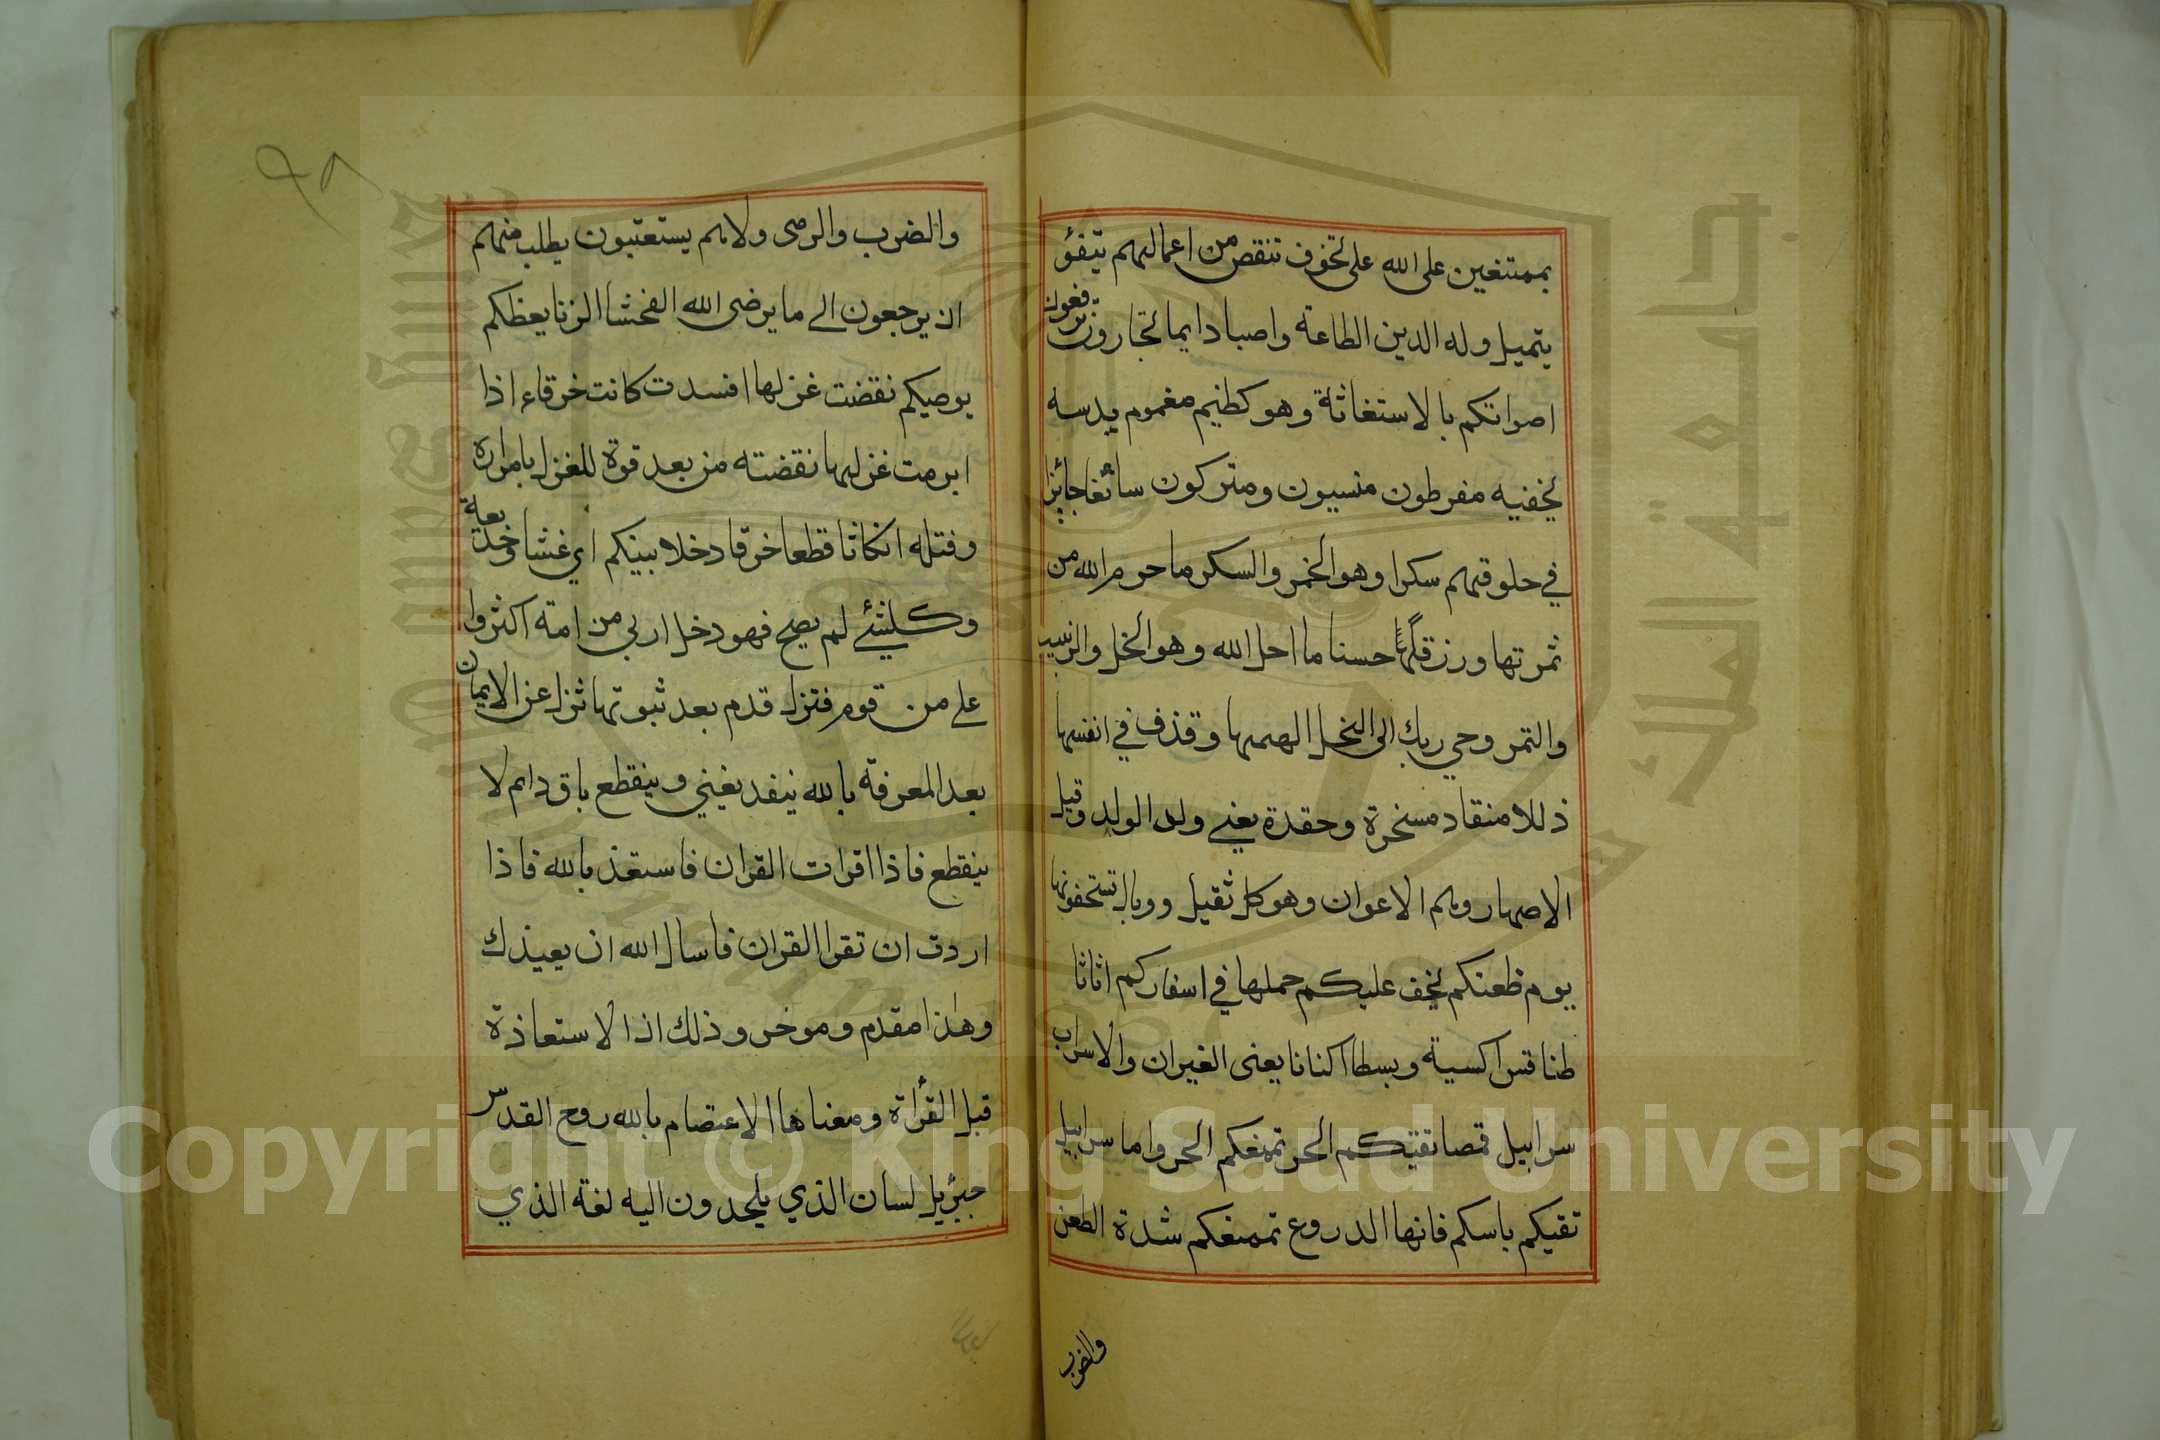 بممتنعين على الله على تخوف تنقص من اعمالهم يتفؤ
يتميل وله الدين الطاعة واصبا دايما تجارون ترفعون
اصواتكم بالاستغاثة وهو كظيم مغموم يدسه
يخفيه مفرطون منسيون ومتركون سائغا جائزا
في حلوقهم سكرا وهو الخمر والسكر ما حرم الله من
ثمرتها ورزقا حسنا ما احل الله وهو الخل والزبيب
والتمر وحي ربك الى النحل الهمها وقذف في انفسها
ذللا منقاد مسخرة وحفدة يعني ولد الولد وقيل
الاصهار وهم الاعوان وهو كل ثقيل ووبال تستخفونها
يوم ظعنكم يخف عليكم حملها في اسفاركم اثاثا
طنافس اكسية وبسطا اكنانا يعنى الغيران والاسراب
سرابيل قمصا تقيكم الحر تمنعكم الحر واما سرابيل
تقيكم باسكم فانها الدروع تمنعكم شدة الطعن
والضرب
٩٨
والضرب والرمى ولا هم يستعتبون يطلب منهم
ان يرجعون الى ما يرضى الله الفحشا الزنا يعظكم
يوصيكم نقضت غزلها افسدت كانت خرقاء اذا
ابرمت غزلها نقضته من بعد قوة للغزل بامراره
وفتله انكاثا قطعا خرقا دخلا بينكم اي غشا وخديعة
وكلشئ لم يصح فهو دخل اربى من امة اكثر وا
على من قوم فتزل قدم بعد ثبوتها تزل عن الايمان
بعد المعرفة بالله ينفد يغني وينقطع باق دام لا
ينقطع فاذا اقرات القران فاستعذ بالله فاذا
اردت ان تقرا القران فاسال الله ان يعيذك
وهذا مقدم وموخر وذلك اذ الاستعاذة
قبل القرأة ومعناها الاعتصام بالله روح القدس
جبرئيل لسان الذي يلحدون اليه لغة الذي
Copyright © King Saud University
جامعة الملك سعود